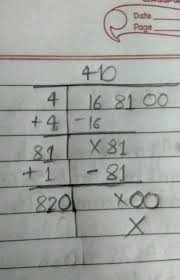 Date
Page
410
4 16 81 00
+4 -16
81 X 81
+1 - 81
820 X00
X